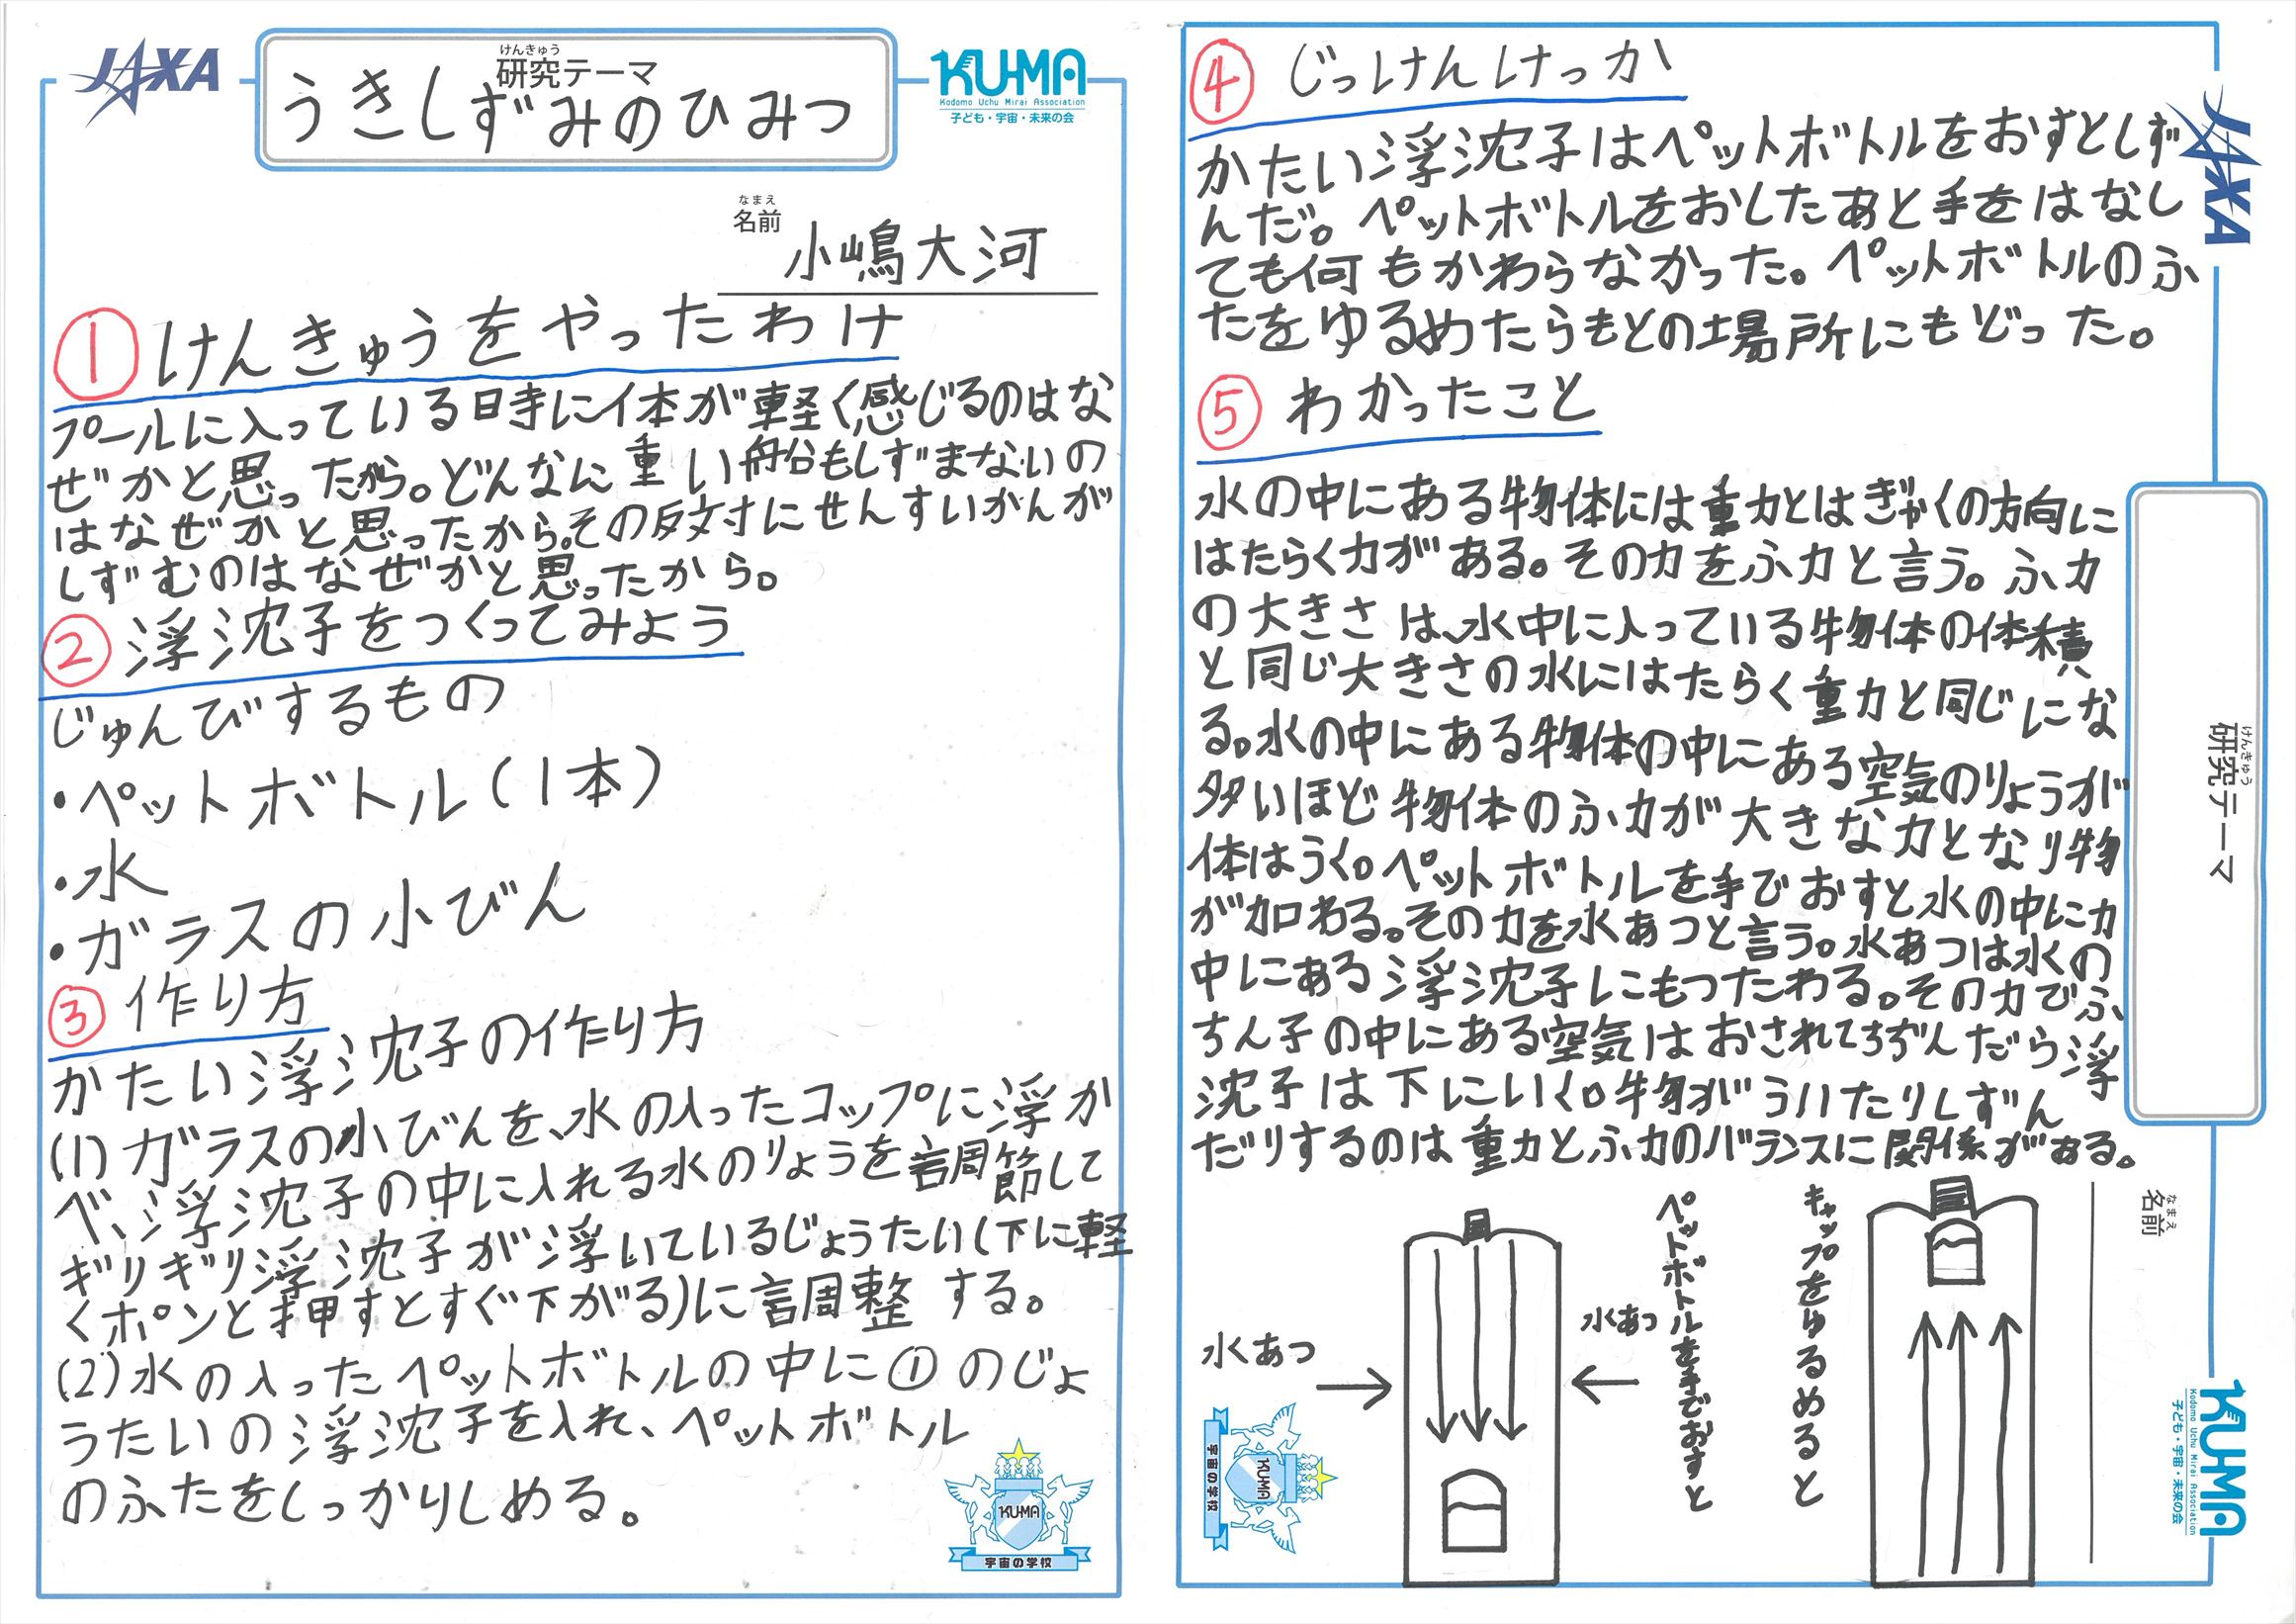 JAXA
けんきゅう
研究テーマ
うきしずみのひみつ
KU-MA
Kodomo Uchu Mirai Association
子ども・宇宙・未来の会
なまえ
名前
小嶋大河
① けんきゅうをやったわけ
プールに入っている時に体が軽く感じるのはな
ぜかと思ったから。どんなに重い船もしずまないの
はなぜかと思ったから。その反対にせんすいかんが
しずむのはなぜかと思ったから。
② 浮沈子をつくってみよう
じゅんびするもの
・ペットボトル(1本)
・水
・ガラスの小びん
③ 作り方
かたい浮沈子の作り方
(1)ガラスの小びんを、水の入ったコップに浮か
べ、浮沈子の中に入れる水のりょうを調節して
ギリギリ浮沈子が浮いているじょうたい(下に軽
くポンと押すとすぐ下がる)に調整する。
(2)水の入ったペットボトルの中に①のじょ
うたいの浮沈子を入れ、ペットボトル
のふたをしっかりしめる。
KU-MA
宇宙の学校
④ じっけんけっか
かたい浮沈子はペットボトルをおすとしず
んだ。ペットボトルをおしたあと手をはなし
ても何もかわらなかった。ペットボトルのふ
たをゆるめたらもとの場所にもどった。
⑤ わかったこと
水の中にある物体には重力とはぎゃくの方向に
はたらく力がある。その力をふ力と言う。ふ力
の大きさは、水中に入っている物体の体積
と同じ大きさの水にはたらく重力と同じにな
る。水の中にある物体の中にある空気のりょうが
多いほど物体のふ力が大きな力となり物
体はうく。ペットボトルを手でおすと水の中に力
が加わる。その力を水あつと言う。水あつは水の
中にある浮沈子にもつたわる。その力でふ
ちん子の中にある空気はおされてちぢんだら浮
沈子は下にいく。物がういたりしずん
だりするのは重力とふ力のバランスに関係がある。
水あつ
水あつ
ペットボトルを手でおすと
キャップをゆるめると
JAXA
けんきゅう
研究テーマ
なまえ
名前
KU-MA
Kodomo Uchu Mirai Association
子ども・宇宙・未来の会
KU-MA
宇宙の学校